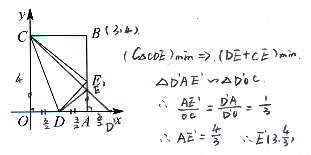 y
C
B (3,4)
4
E
E'
O
3/2
D
3/2
A
D'
x
(C△CDE)min => (DE+CE)min.
△D'AE' ∽ △D'OC.
∴ AE'/OC = D'A/D'O = 1/3
∴ AE' = 4/3 ∴ E'(3, 4/3)